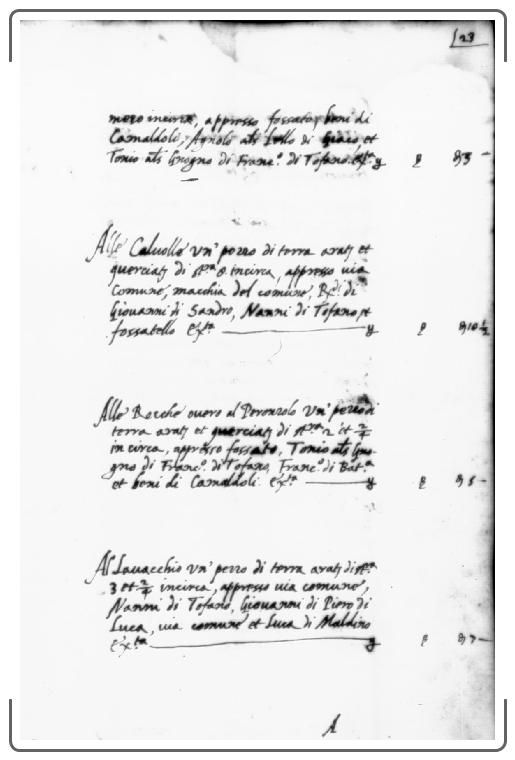 23
mezo incirca, appresso fossato, beni di
Camaldoli, Agnolo als Lello di Giaco, et
Tonio als Gnogno di Franc.º di Tofano, etx.ª y
Alle Calvolle un' pezzo di terra arat; et
querciat; di st.ra 8 incirca, appresso via
Comune, macchia del comune, Rx.di di
Giovanni di Sandro, Nanni di Tofano, et
fossatello etx.ª y 10 1/2
Alle Rocche overo al Peronzolo un' pezzo di
terra arat; et querciat; di st.ra 2 et 2/4
incirca, appresso fossato, Tonio als Gno-
gno di Franc.º di Tofano, Franc.º di Bat.ª
et beni di Camaldoli etx.ª y 5
Al Lavacchio un' pezzo di terra arat; di st.ra
3 et 2/4 incirca, appresso via comune,
Nanni di Tofano, Giovanni di Piero di
Luca, via comune et Luca di Maldino
etx.ta y 7
A